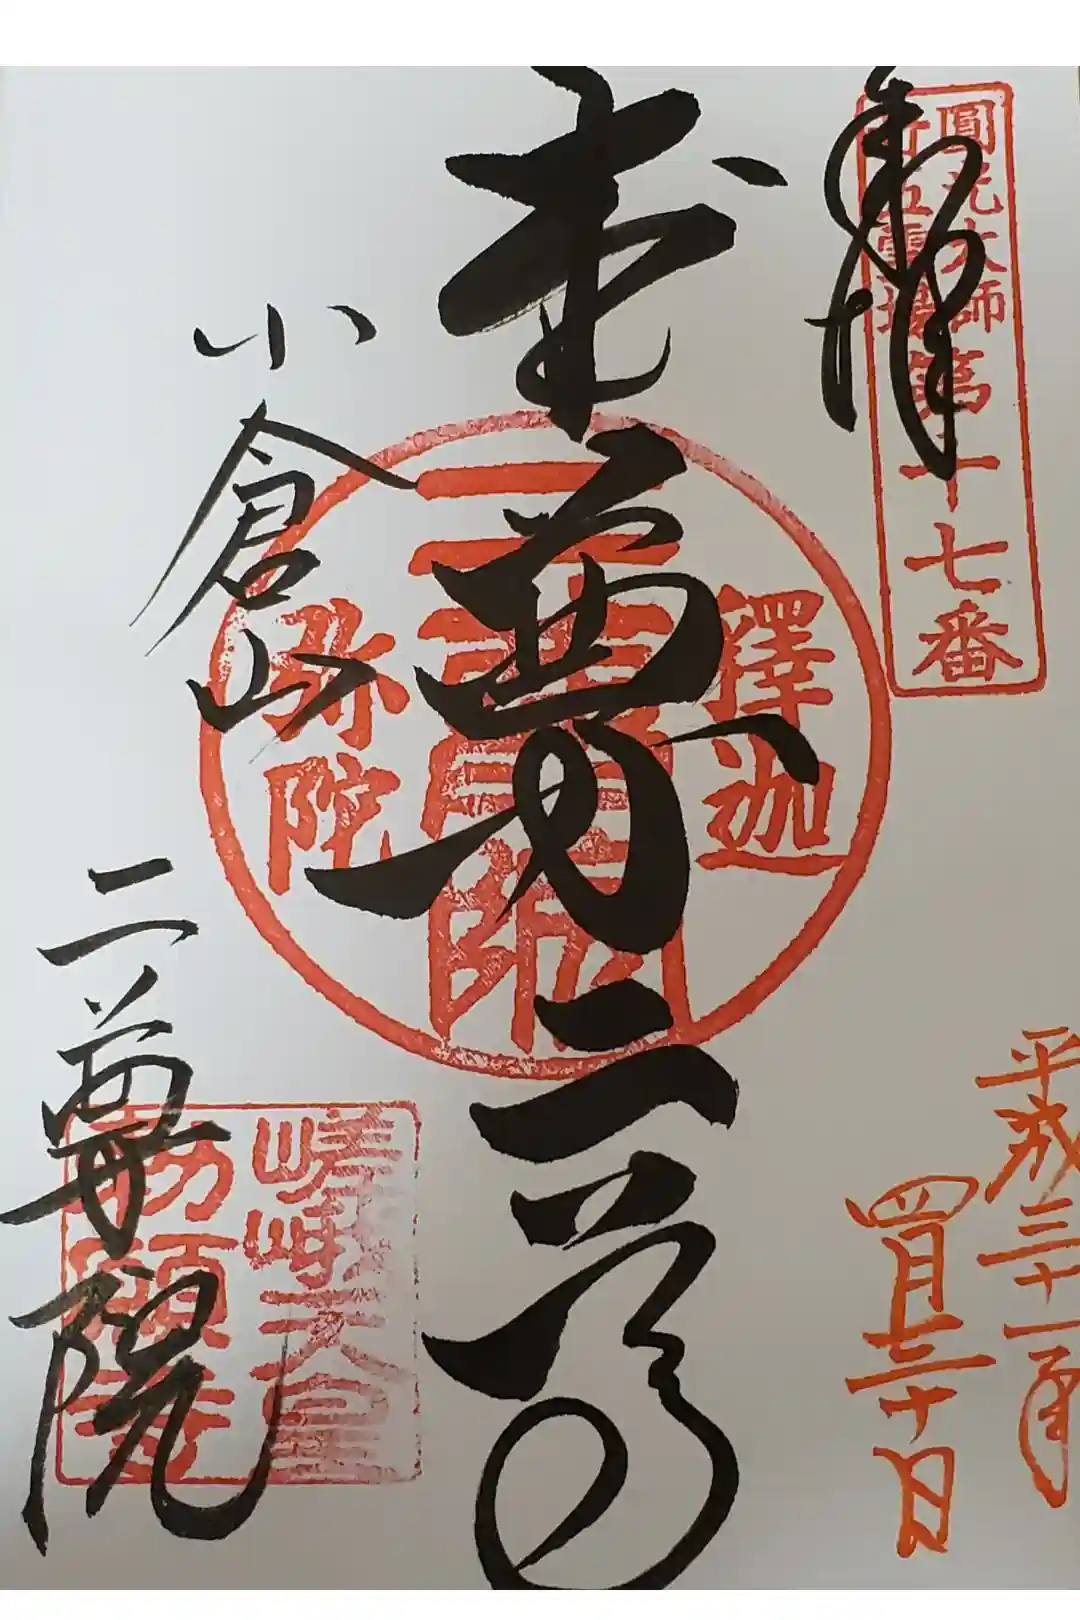 奉拝
圓光大師
廿五霊場第十七番
平成三十一年
四月三十日
本尊二尊
釋迦
二尊院
弥陀
小倉山
二尊院
嵯峨天皇
勅願寺